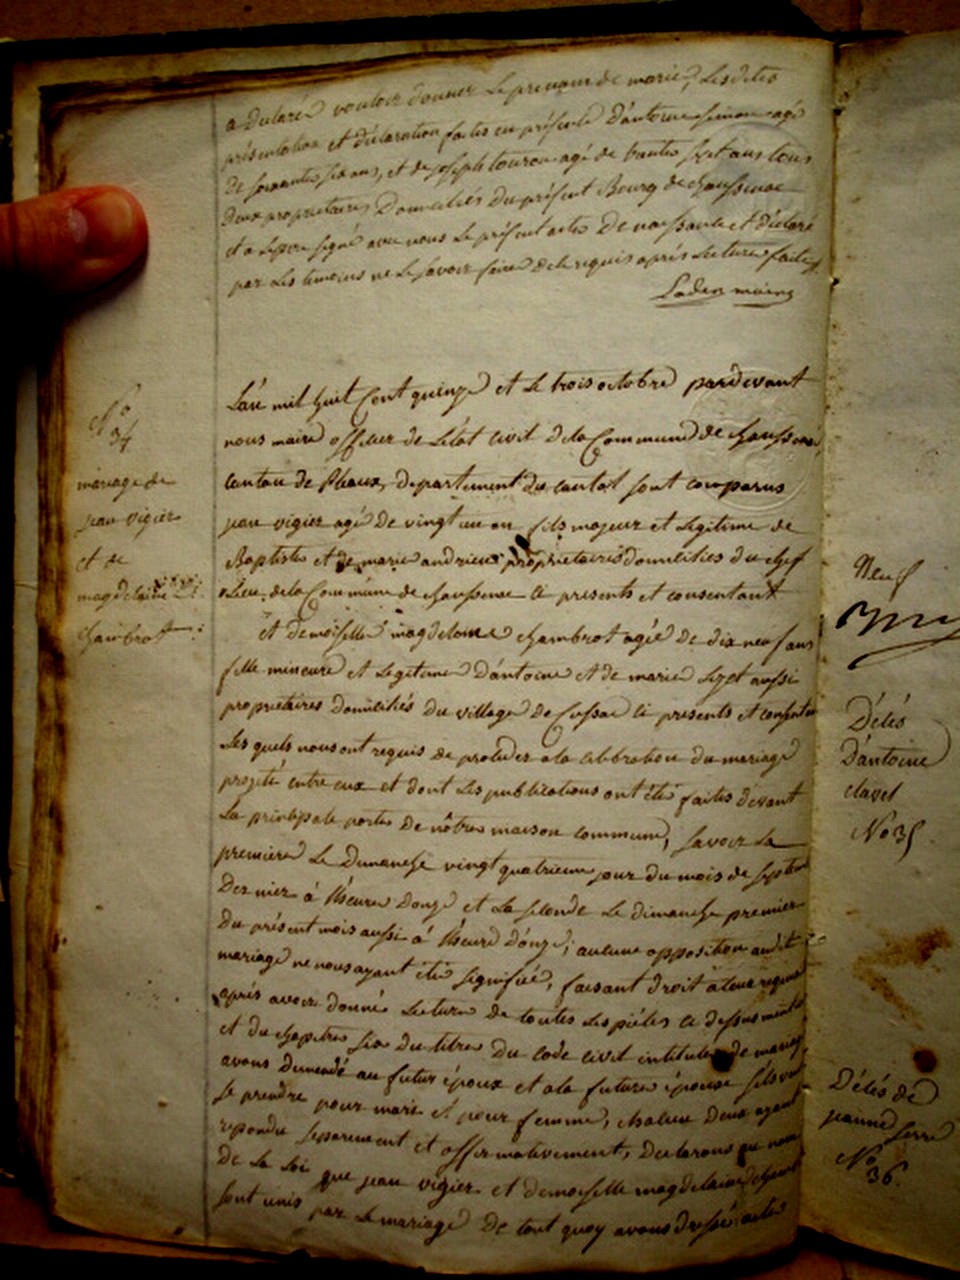 a déclaré vouloir donner le prenom de marie, lesdites
présentation et déclaration faites en présence d'antoine simon agé
de soixante six ans, et de joseph touron agé de trente sept ans tous
deux proprietaires Domiciliés du présent Bourg de chaussenac
et a le pere signé avec nous le présent acte de naissance et déclaré
par les temoins ne le savoir faire de ce requis après lecture faite
Laden maire
L'an mil huit Cent quinze et le trois octobre pardevant
nous maire officier de L'état civil de la Commune de chaussenac
canton de Pleaux, departement du cantal sont comparus
jean vigier agé de vingt un an fils majeur et legitime de
Baptiste et de marie andrieux proprietaires domiciliés du chef
Lieu de la Commune de chaussenac ci presents et consentant
et demoiselle magdelaine chambrot agée de dix neuf ans
fille mineure et legitime D'antoine et de marie aussi
propriétaires domiciliés du village de Cussac ci presents et consentant
Les quels nous ont requis de proceder a la celebration du mariage
projeté entre eux et dont les publications ont été faites devant
La principale porte de nôtre maison commune, savoir la
premiere le dimanche vingt quatrieme jour du mois de septembre
Dernier à l'heure donze et la seconde le dimanche premier
Du présent mois aussi à l'heure d'onze; aucune opposition audit
mariage ne nous ayant été signifiée, faisant droit à leur requis
après avoir donné lecture de toutes les pièces ci dessus ment
et du chapitre six du titre du code civil intitulé de mariage
avons demandé au futur époux et a la future épouse s'ils veul
se prendre pour mari et pour femme, chacun deux ayant
repondu separement et affirmativement, declarons au nom
De la Loi que jean vigier et demoiselle magdelaine chambrot
sont unis par le mariage De tout quoy avons dressé acte
No
34
mariage de
jean vigier
et de
magdelaine
chambrot
Neuf
Décés
D'antoine
clavel
No 35
Décés de
jeanne Serre
No
36